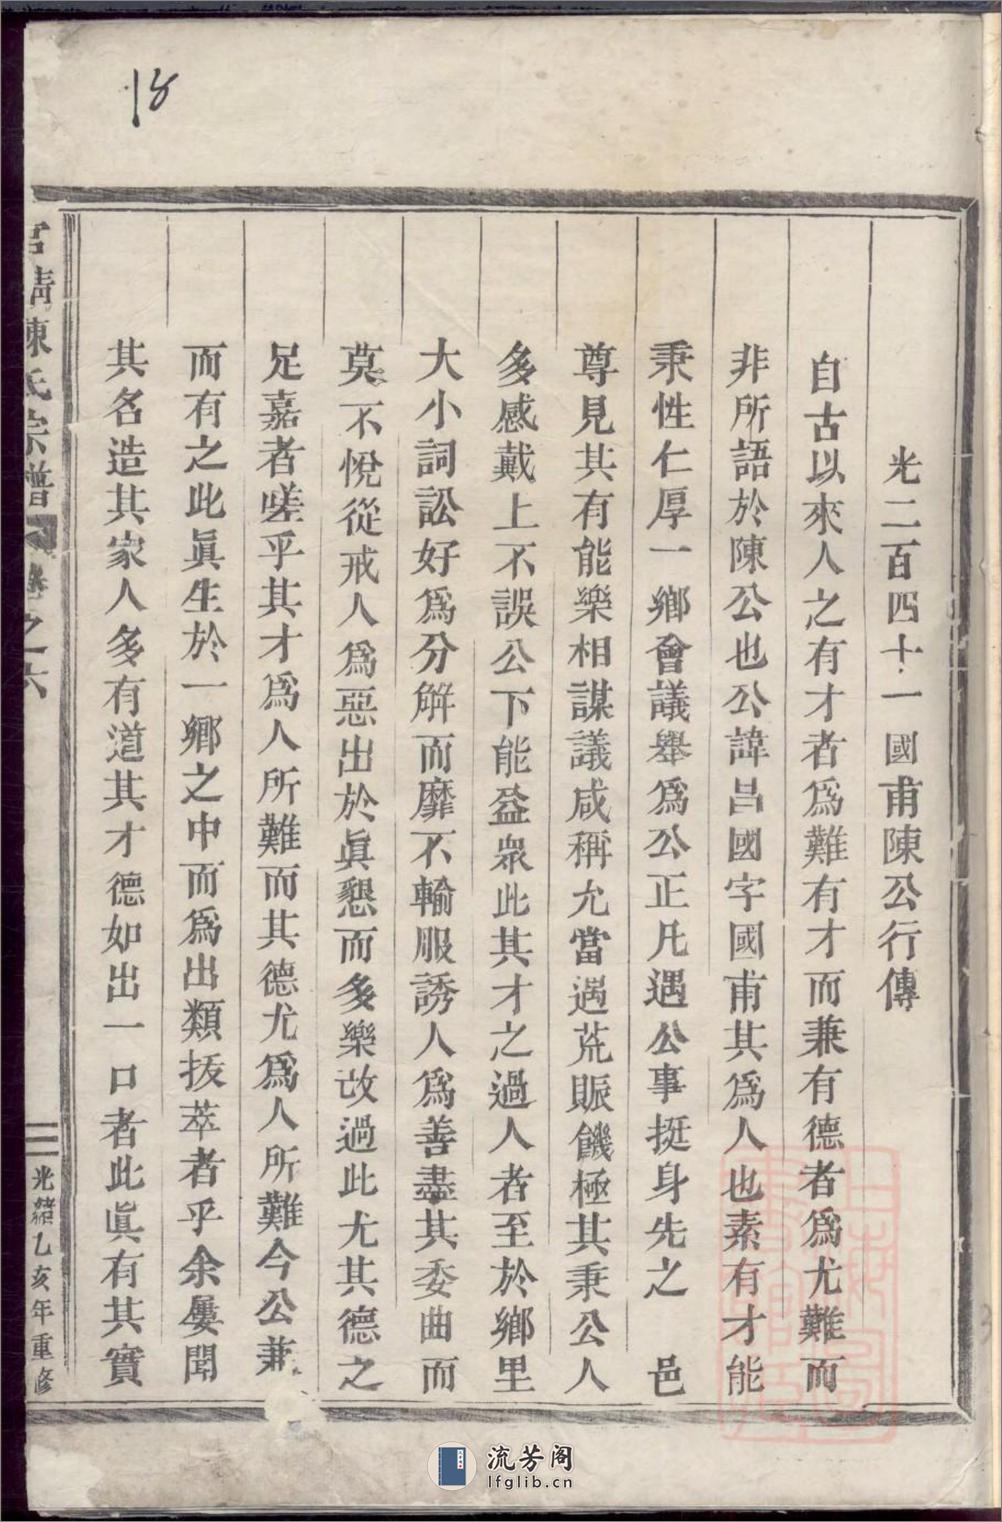 18
光二百四十一國甫陳公行傳
自古以來人之有才者爲難有才而兼有德者爲尤難而
非所語於陳公也公諱昌國字國甫其爲人也素有才能
秉性仁厚一鄉會議舉爲公正凡遇公事挺身先之 邑
尊見其有能樂相謀議咸稱允當遇荒賑饑極其秉公人
多感戴上不誤公下能益衆此其才之過人者至於鄉里
大小詞訟好爲分解而靡不輸服誘人爲善盡其委曲而
莫不悅從戒人爲惡出於眞懇而多樂改過此尤其德之
足嘉者嗟乎其才爲人所難而其德尤爲人所難今公兼
而有之此眞生於一鄉之中而爲出類拔萃者乎余屢聞
其名造其家人多有道其才德如出一口者此眞有其實
清陳氏宗譜 卷之六
光緒乙亥年重修
流芳阁
lfglib.cn